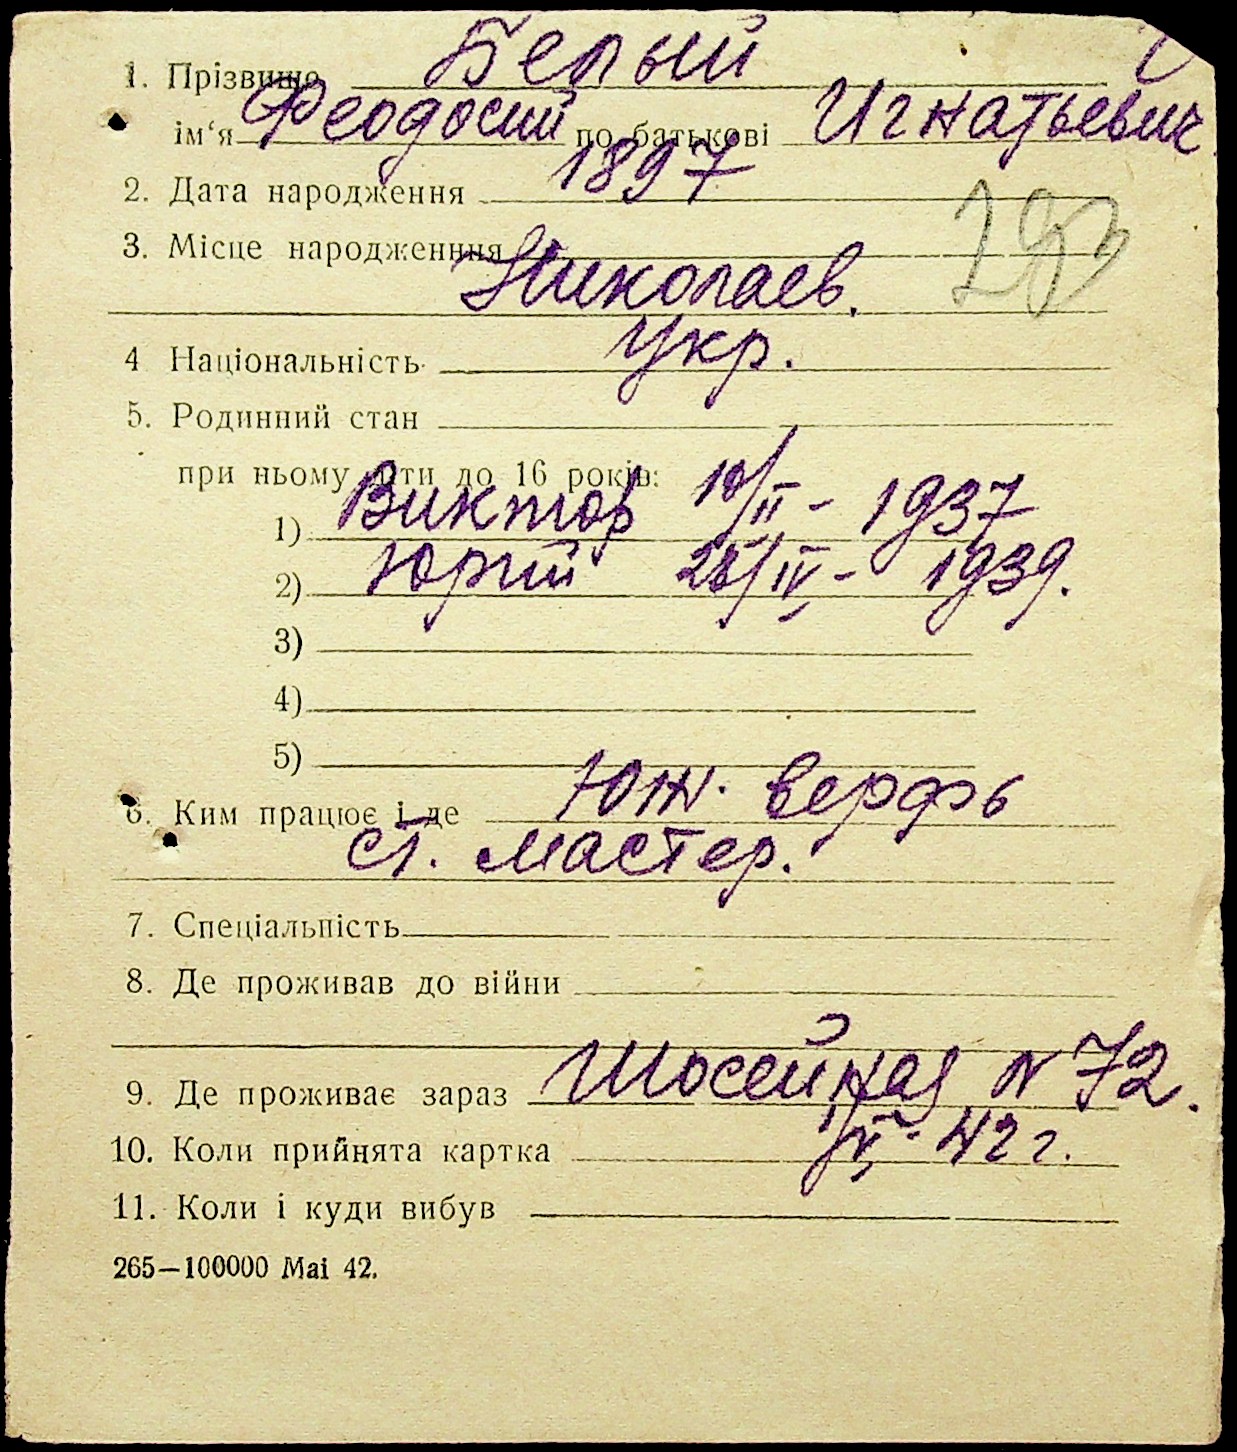 1. Прізвище Белый
ім‘я Феодосий по батькові Игнатьевич
2. Дата народження 1897
3. Місце народженння
Николаев.
4 Національність Укр.
5. Родинний стан
при ньому діти до 16 років:
1) Виктор 10/II - 1937
2) Юрий 28/IV - 1939.
3)
4)
5)
6. Ким працює і де Юж. верфь
ст. мастер.
7. Спеціальність
8. Де проживав до війни
9. Де проживає зараз Шосейная N 72.
10. Коли прийнята картка 42 г.
11. Коли і куди вибув
265—100000 Mai 42.